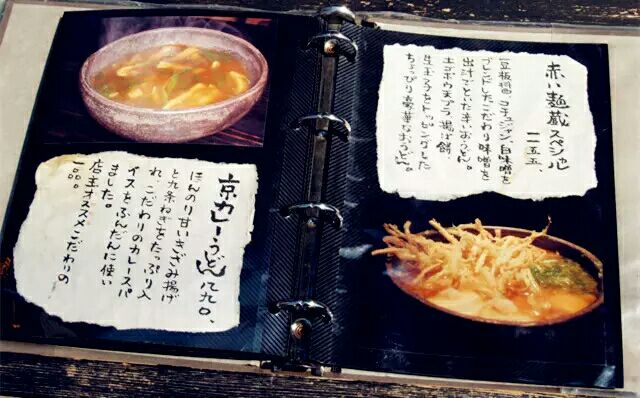 赤い麺蔵スペシャル
豆板醤、コチュジャン、白味噌を
ブレンドしたこだわり味噌を
出汁でといた辛いおうどん。
土ゴボウ天プラ、揚げ餅、
生玉子をトッピングした
ちょっぴり豪華なおうどん。
京カレーうどん 八九〇、
ほんのり甘いきざみ揚げ
と九条ねぎをたっぷり入
れ、こだわりのカレースパ
イスをふんだんに使い
ました。
店主オススメこだわりの
一品。